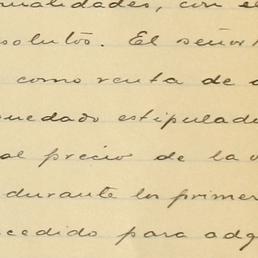 malidades, con el
solutos. El señor
como renta de
quedado estipulado
al precio de la
durante los primer
cedido para adq